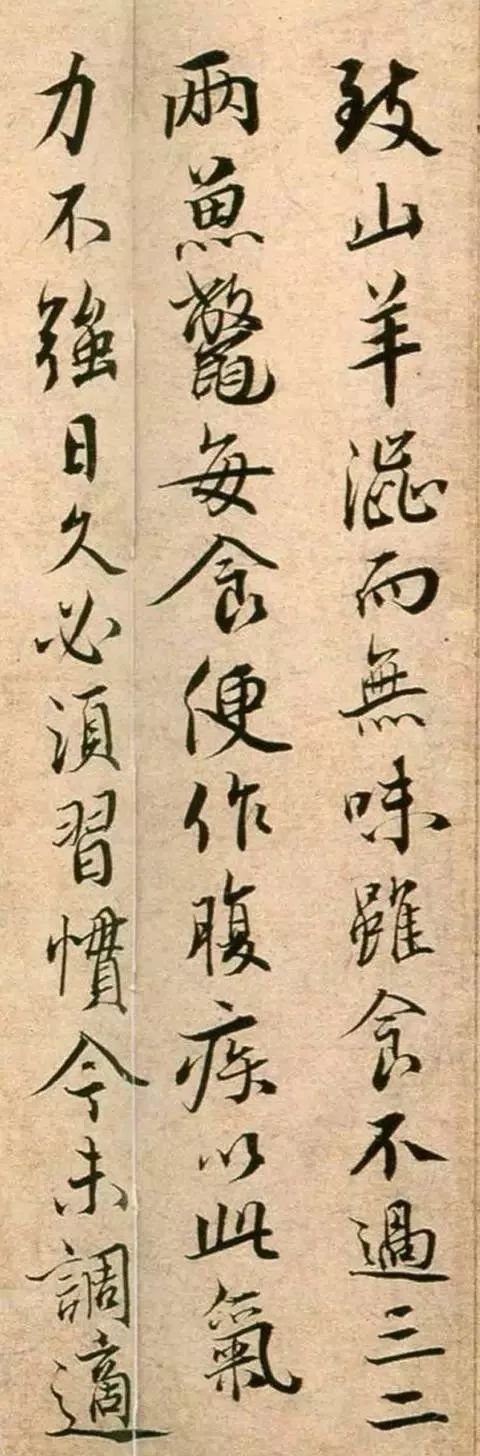 致山羊澀而無味雖食不過三二
兩魚鼈每食便作腹疾以此氣
力不強日久必須習慣今未調適